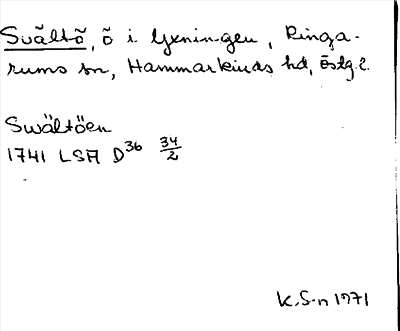 Svältö, ö i Yxningen, Ringa-
rums sn, Hammarkinds hd, Östg. l.
Swältöen
1741 LSA D36 34/2
K.S-n 1971